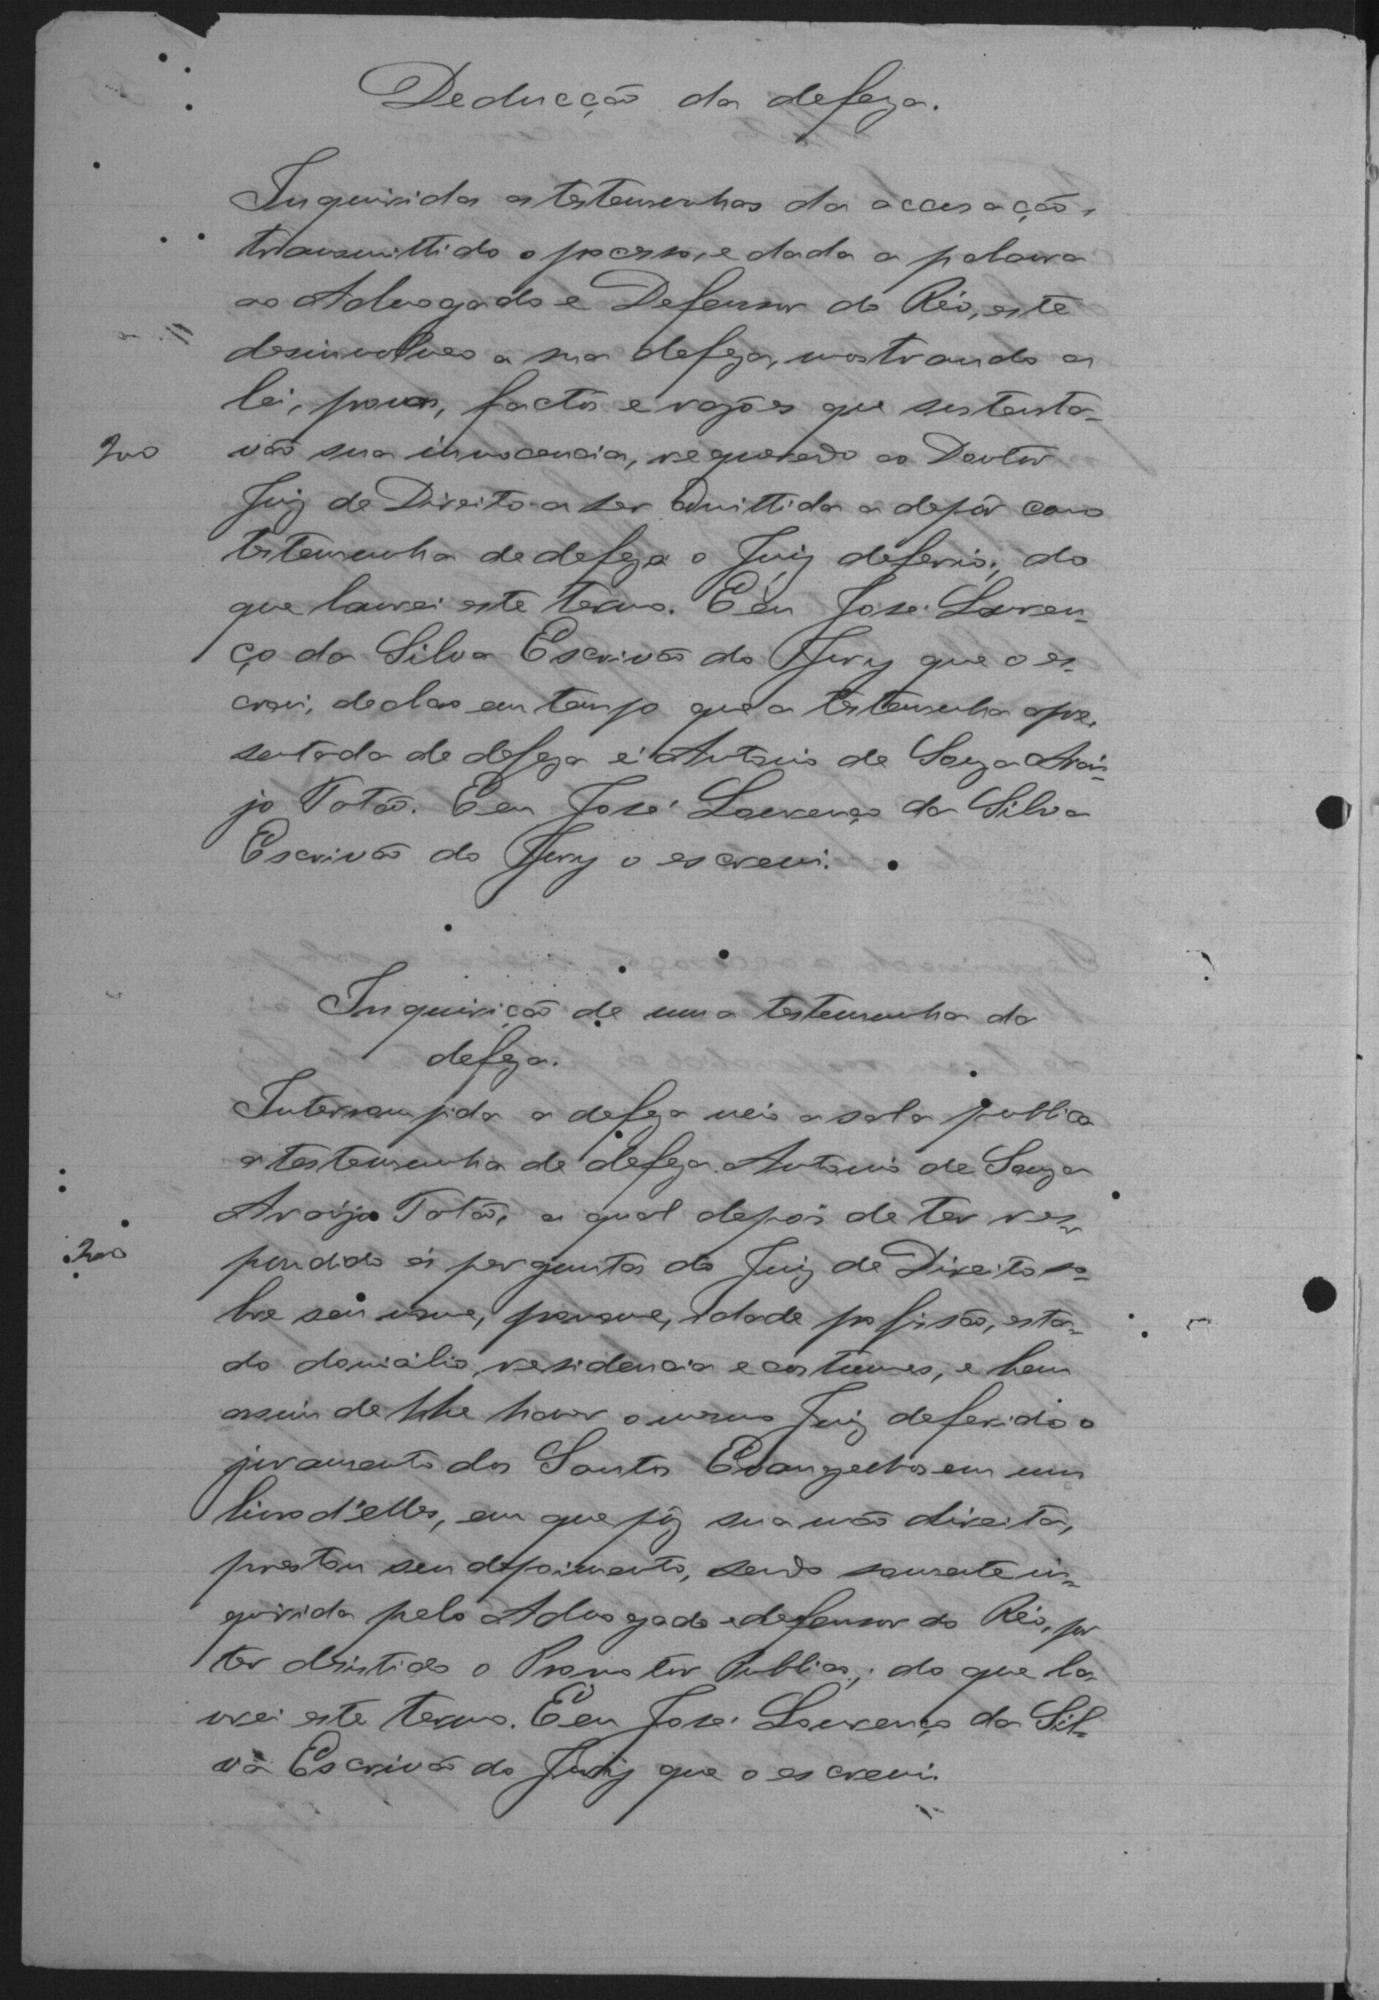 Deducção da defeza.
Inquirida as testemunhas da accusação,
transmittido o processo, e dada a palavra
ao Advogado e Defensor do Réo, este
desinvolveo a sua defeza, mostrando a
lei, provas, factos e razões que sustenta-
vão sua innocencia, requerendo ao Doutor
200
Juiz de Direito a ser admittida a depôr como
testemunha de defeza o Juiz deferio; do
que lavrei este termo. E eu José Louren-
ço da Silva Escrivão do Jury que o es-
crevi, declaro em tempo que a testemunha apre-
sentada de defeza é Antonio de Souza Arau-
jo Totão. E eu José Lourenço da Silva
Escrivão do Jury o escrevi.
Inquirição de uma testemunha da
defeza.
Interrompida a defeza veio a sala publica
a testemunha de defeza Antonio de Souza
Araújo Totão, a qual depois de ter res-
pondido ás perguntas do Juiz de Direito so-
200
bre seu nome, pronome, idade profissão, esta-
do domicilio, residencia e costumes, e bem
assim de lhe haver o mesmo Juiz deferido o
juramento dos Santos Evangelhos em um
livro d'elles, em que pôz sua mão direita,
prestou seu depoimento, sendo somente in-
quirida pelo Advogado e defensor do Réo, por
ter desistido o Promotor Publico; do que la-
vrei este termo. E eu José Lourenço da Sil-
va Escrivão do Jury que o escrevi.